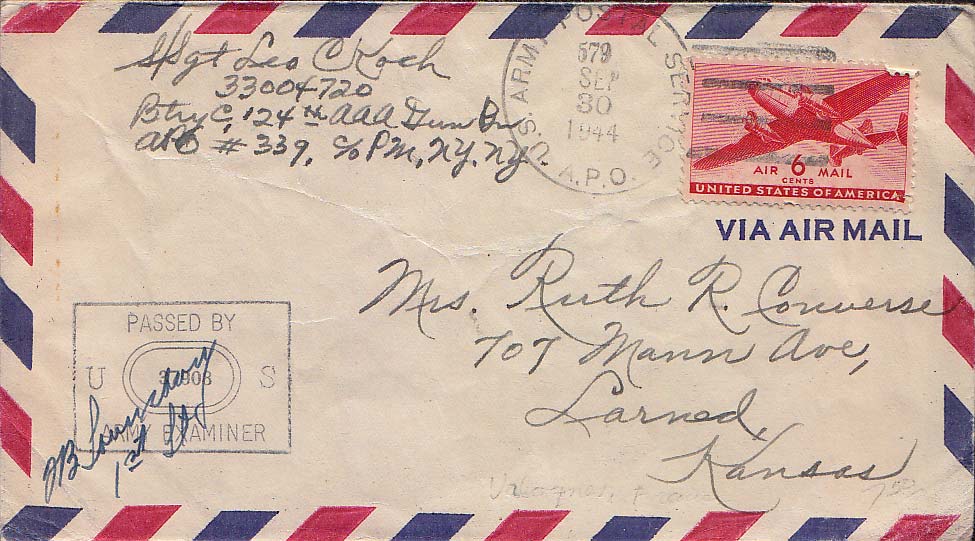 S/Sgt Leo C Koch
33004720
Btry C, 124th AAA Gun Bn
APO # 339, c/o PM, NY, NY.
U.S. ARMY POSTAL SERVICE
A.P.O.
579
SEP
30
1944
AIR 6 MAIL
CENTS
UNITED STATES OF AMERICA
VIA AIR MAIL
Mrs. Ruth R. Converse
707 Mann Ave,
Larned,
Kansas
PASSED BY
U 37908 S
ARMY EXAMINER
1st Lt